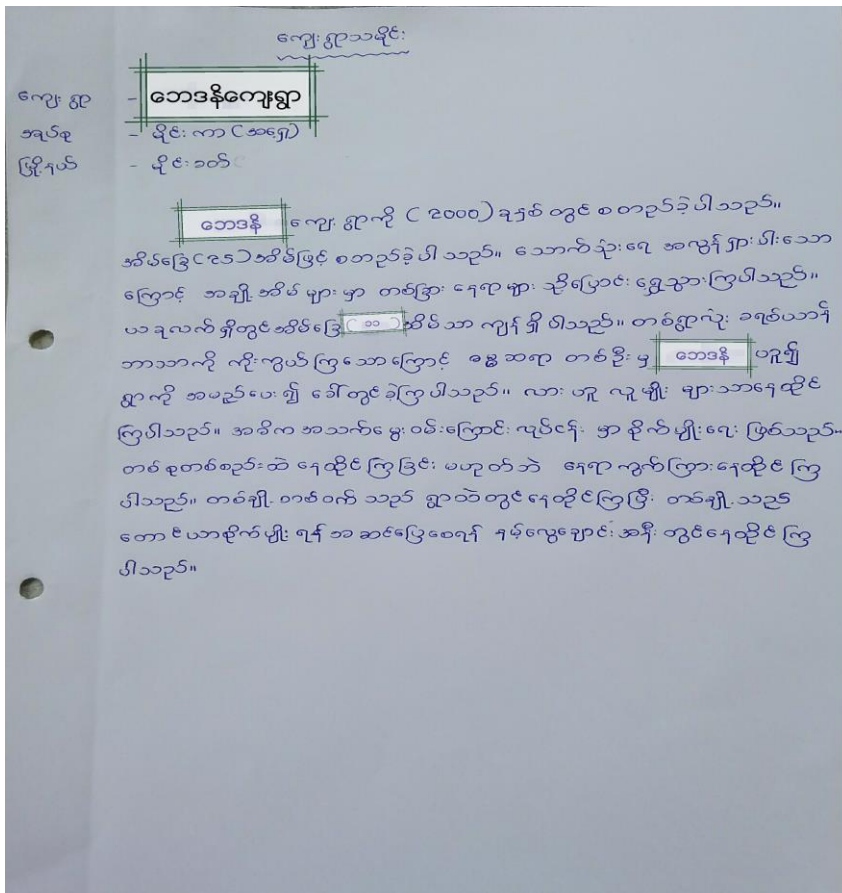 ကျေးရွာသမိုင်း
ကျေးရွာ - ဘေဒနိကျေးရွာ
အုပ်စု - မိုင်းကာ (အရှေ့)
မြို့နယ် - မိုင်းခတ်
ဘေဒနိ ကျေးရွာကို (2000) ခုနှစ်တွင် စတည်ခဲ့ပါသည်။
အိမ်ခြေ(25)အိမ်ဖြင့် စတည်ခဲ့ပါသည်။ သောက်သုံးရေ အလွန်ရှားပါးသော
ကြောင့် အချို့အိမ်များမှာ တစ်ခြားနေရာများ သို့ပြောင်းရွှေ့သွားကြပါသည်။
ယခုလက်ရှိတွင်အိမ်ခြေ(၁၁)အိမ်သာ ကျန်ရှိပါသည်။ တစ်ရွာလုံး ခရစ်ယာန်
ဘာသာကို ကိုးကွယ်ကြသောကြောင့် ဓမ္မဆရာ တစ်ဦးမှ ဘေဒနိ ဟူ၍
ရွာကို အမည်ပေး၍ ခေါ်တွင်ခဲ့ကြပါသည်။ လားဟူလူမျိုးများသာနေထိုင်
ကြပါသည်။ အဓိက အသက်မွေးဝမ်းကြောင်းလုပ်ငန်းမှာ စိုက်မျိုးရေး ဖြစ်သည်။
တစ်စုတစ်စည်းထဲ နေထိုင်ကြခြင်း မဟုတ်ဘဲ နေရာကွက်ကြားနေထိုင်ကြ
ပါသည်။ တစ်ချို့တစ်ဝက်သည် ရွာထဲတွင်နေထိုင်ကြပြီး တစ်ချို့သည်
တောင်ယာစိုက်မျိုးရန် အဆင်ပြေစေရန် နမ့်လွေချောင်းအနီးတွင်နေထိုင်ကြ
ပါသည်။